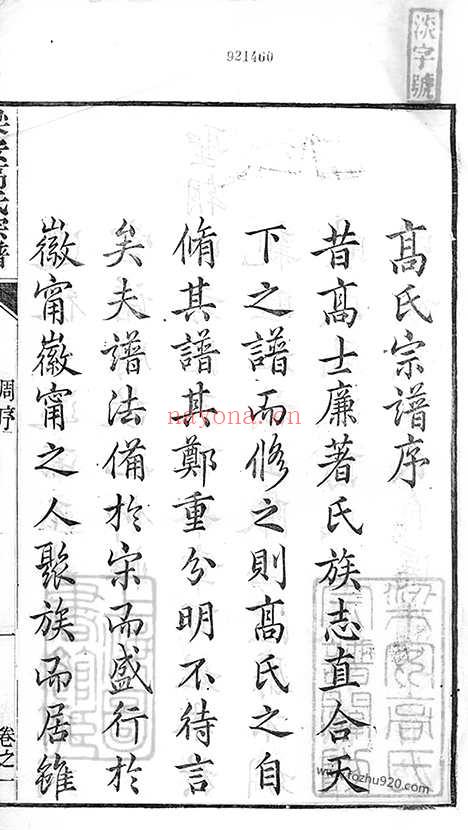 淡字號
921460
高氏宗譜序
昔高士廉著氏族志直合天
下之譜而修之則高氏之自
脩其譜其鄭重分明不待言
矣夫譜法備於宋而盛行於
徽甯徽甯之人聚族而居雖
梁安高氏宗譜
周序
卷之一
nayona.cn
www.rozhu920.com